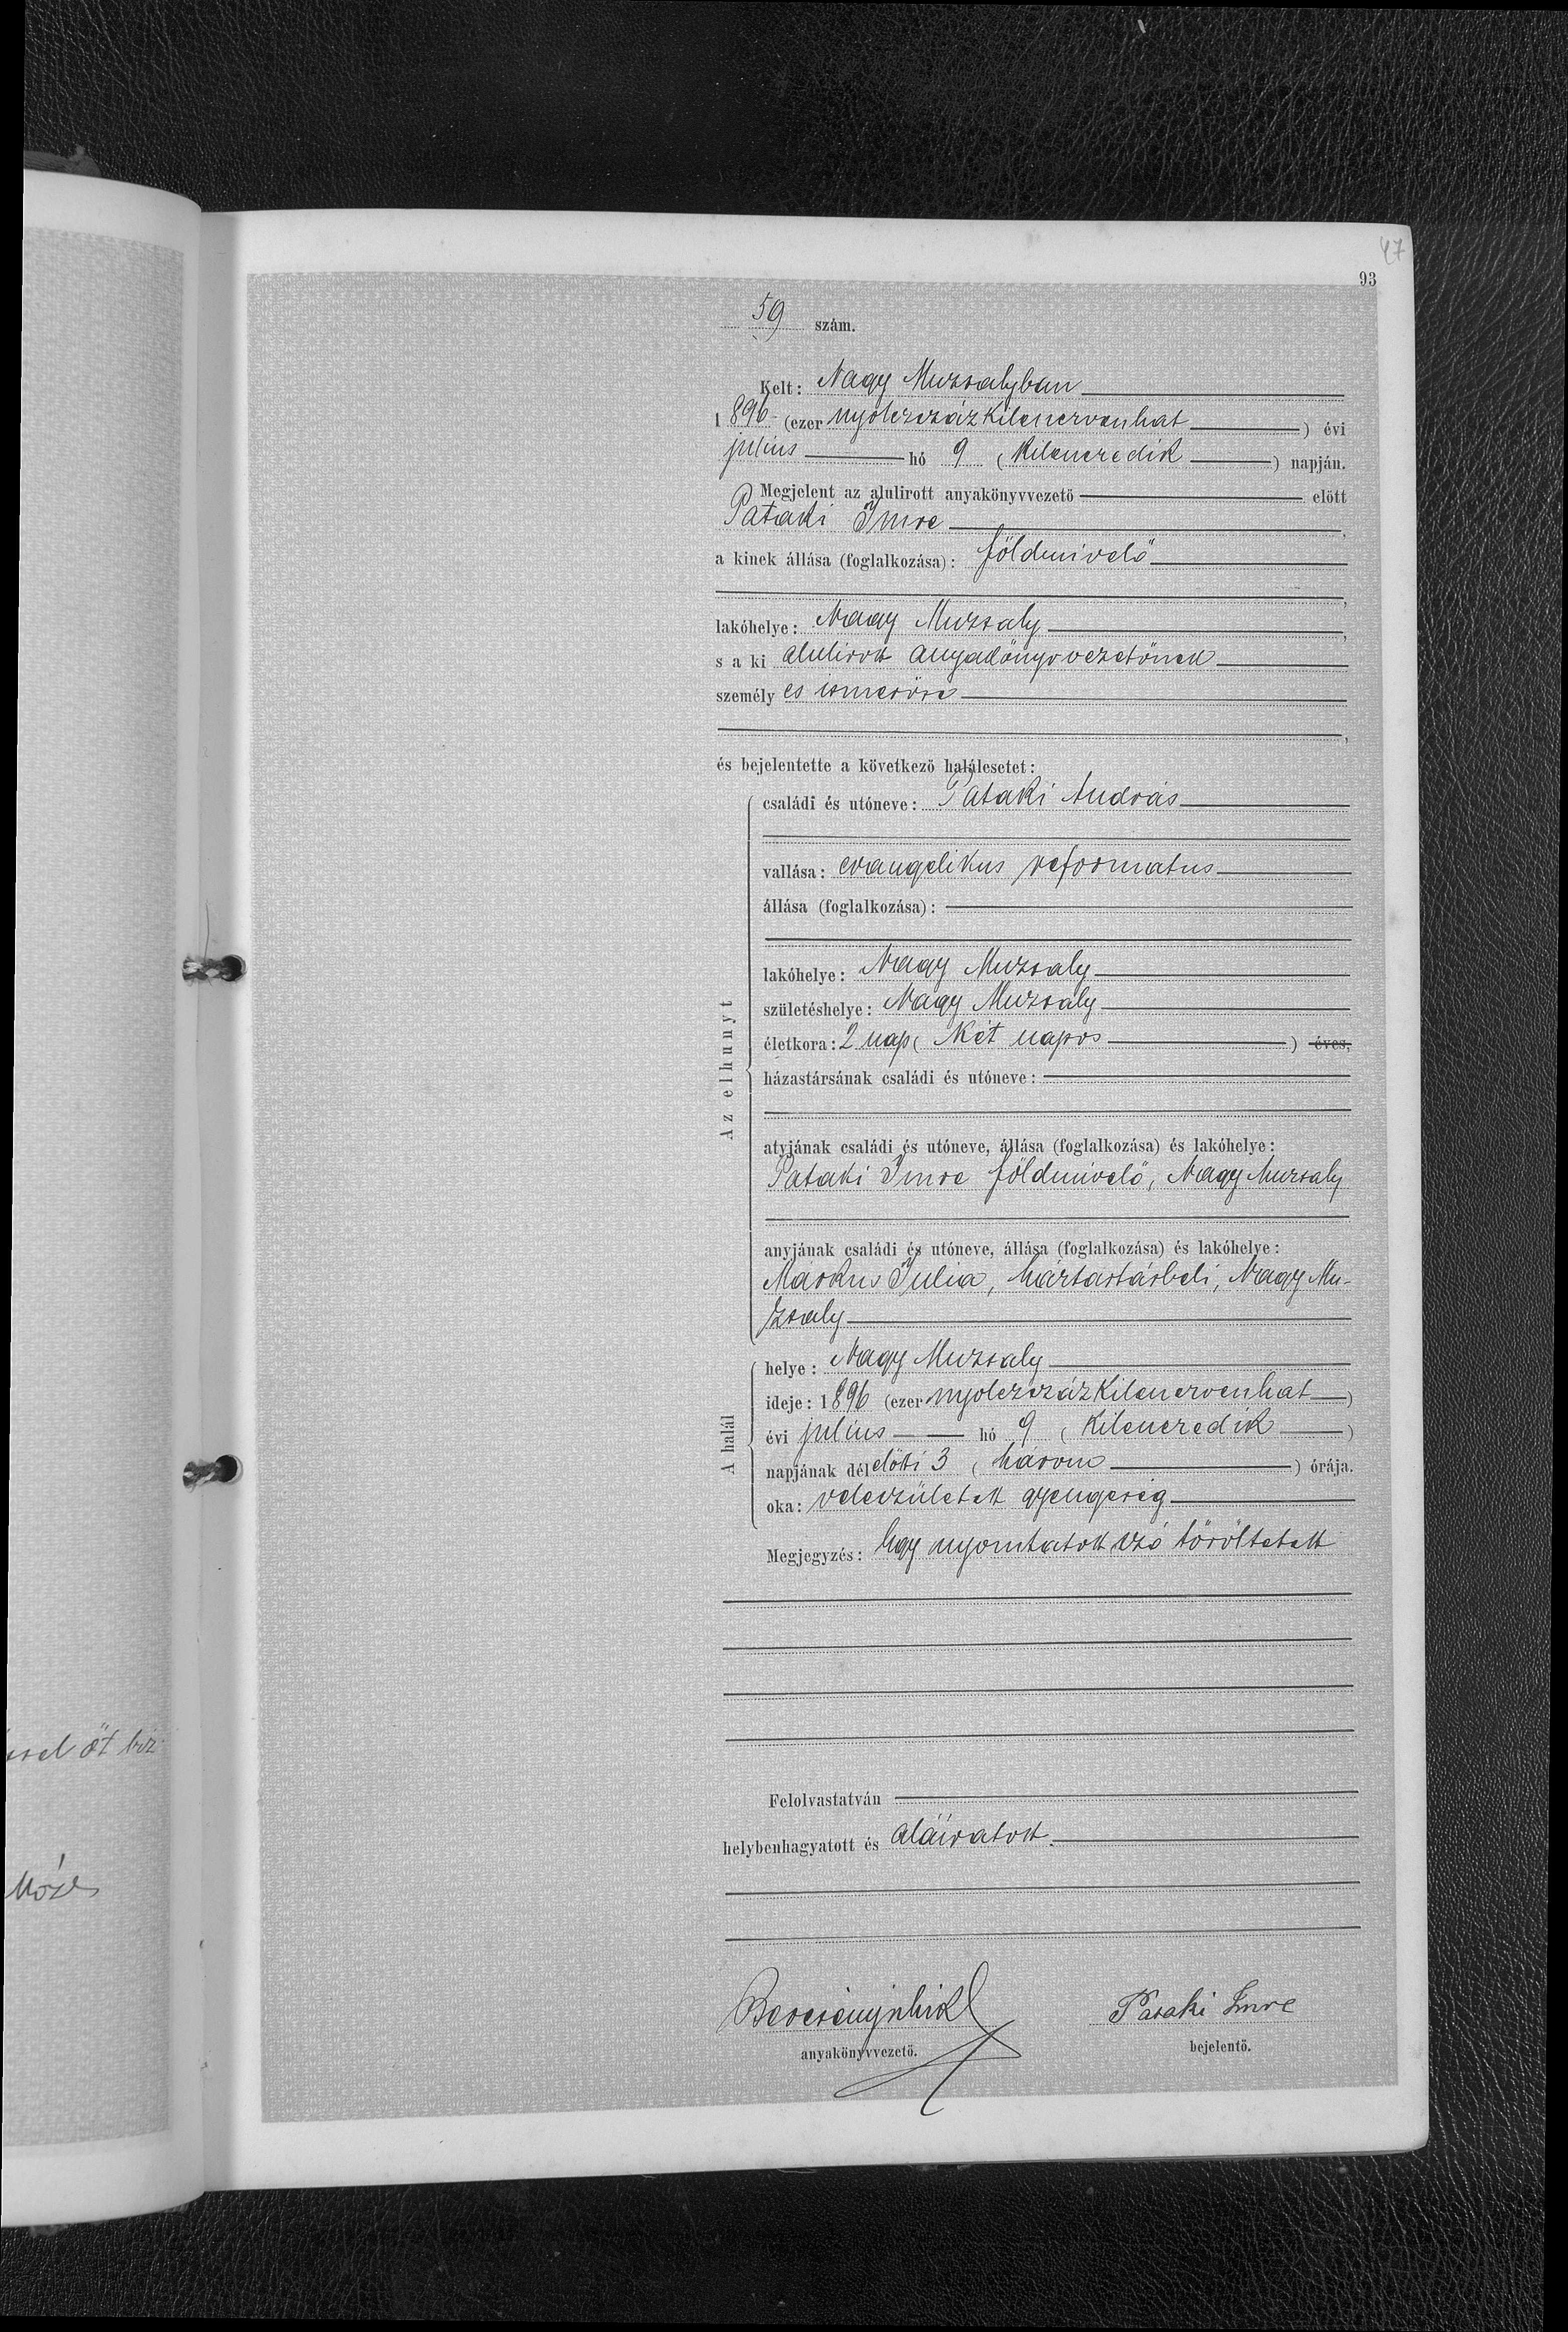 47
93
59 szám.
Kelt: Nagy Muzsalyban
1896 (ezer nyolczszázkilenczvenhat) évi
julius hó 9 (kilenczedik) napján.
Megjelent az alulirott anyakönyvvezető előtt
Pataki Imre,
a kinek állása (foglalkozása): földmivelő
lakóhelye: Nagy Muzsaly,
s a ki alulirott anyakönyvvezetőnek
személyes ismerőse
és bejelentette a következő halálesetet:
Az elhunyt
családi és utóneve: Pataki András
vallása: evangelikus reformatus
állása (foglalkozása):
lakóhelye: Nagy Muzsaly
születéshelye: Nagy Muzsaly
életkora: 2 nap (Két napos) éves,
házastársának családi és utóneve:
atyjának családi és utóneve, állása (foglalkozása) és lakóhelye:
Pataki Imre földmivelő, Nagy Muzsaly
anyjának családi és utóneve, állása (foglalkozása) és lakóhelye:
Markus Julia, háztartásbeli, Nagy Mu-
zsaly
A halál
helye: Nagy Muzsaly
ideje: 1896 (ezer nyolczszázkilenczvenhat)
évi julius hó 9 (kilenczedik)
napjának délelőtti 3 (három) órája.
oka: veleszületett gyengeség
Megjegyzés: Egy nyomtatott szó töröltetett
Felolvastatván
helybenhagyatott és aláiratott.
Pataki Imre
anyakönyvvezető.
bejelentő.
öt